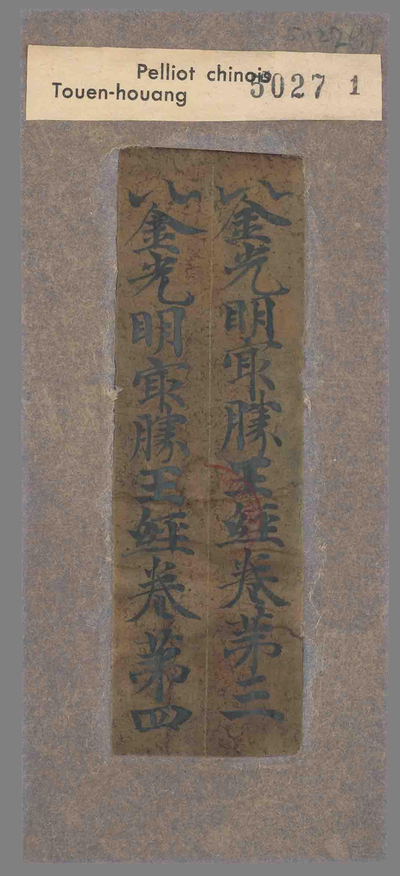 Pelliot chinois
Touen-houang
5027 1
金光明㝡勝王經卷第三
金光明㝡勝王經卷第四